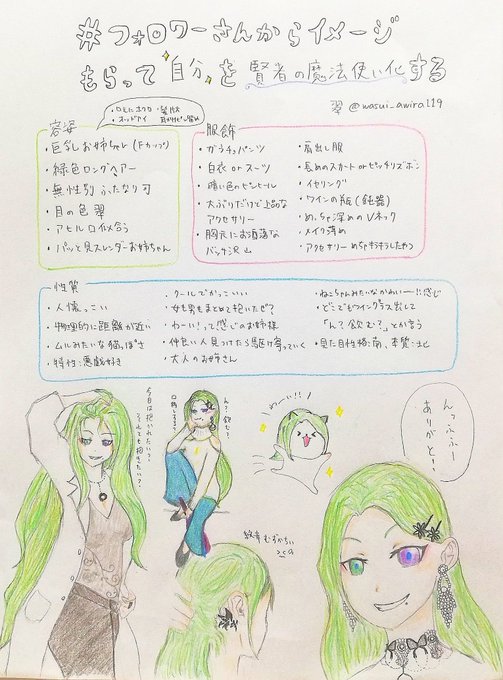 #フォロワーさんからイメージ
もらって自分を賢者の魔法使い化する
翠 @wasui_awira119
容姿
・口元にホクロ
・オッドアイ
・巨乳お姉ちゃん(Fカップ)
・緑色ロングヘアー
・無性別 ふたなり可
・目の色 翠
・アヒル口似合う
・パッと見スレンダーお姉ちゃん
服飾
・ガラチョパンツ
・白衣 or スーツ
・暗い色のピンヒール
・大ぶりだけど上品な
アクセサリー
・胸元にお洒落な
バッヂ沢山
・肩出し服
・長めのスカート or ピッチリズボン
・イヤリング
・ワインの瓶(鈍器)
・めっちゃ深めのVネック
・メイク薄め
性質
・人懐っこい
・物理的に距離が近い
・ムルみたいな猫っぽさ
・特性:悪戯好き
・クールでかっこいい
・女も男もまとめて抱いたぜ?
・わーい!って感じのお姉様
・仲良い人見つけたら駆け寄っていく
・大人のお姉さん
・ねこちゃんみたいなかわいー!!感じ
・どこでもワイングラス出して
「ん?飲む?」とか言う
・見た目性格:南、本質:北
今日は抱かれたい?
それとも抱きたい?
ん?飲む?
わーい!!
んっふふー
ありがと!